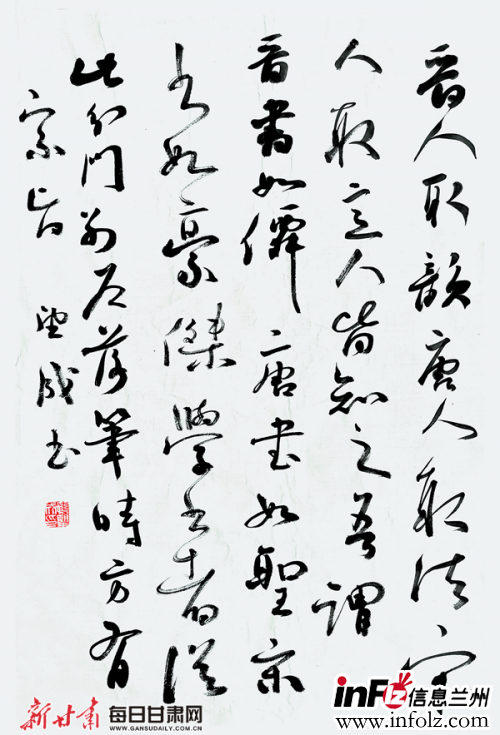 晋人取韻唐人取法宋
人取意人皆知之吾謂
晋書如僊唐書如聖宋
书如豪傑學书者從
此分門别户落筆時方有
宗旨 望成书
新甘肃
每日甘肃网
WWW.GANSUDAILY.COM.CN
inFLZ信息兰州
www.infolz.com